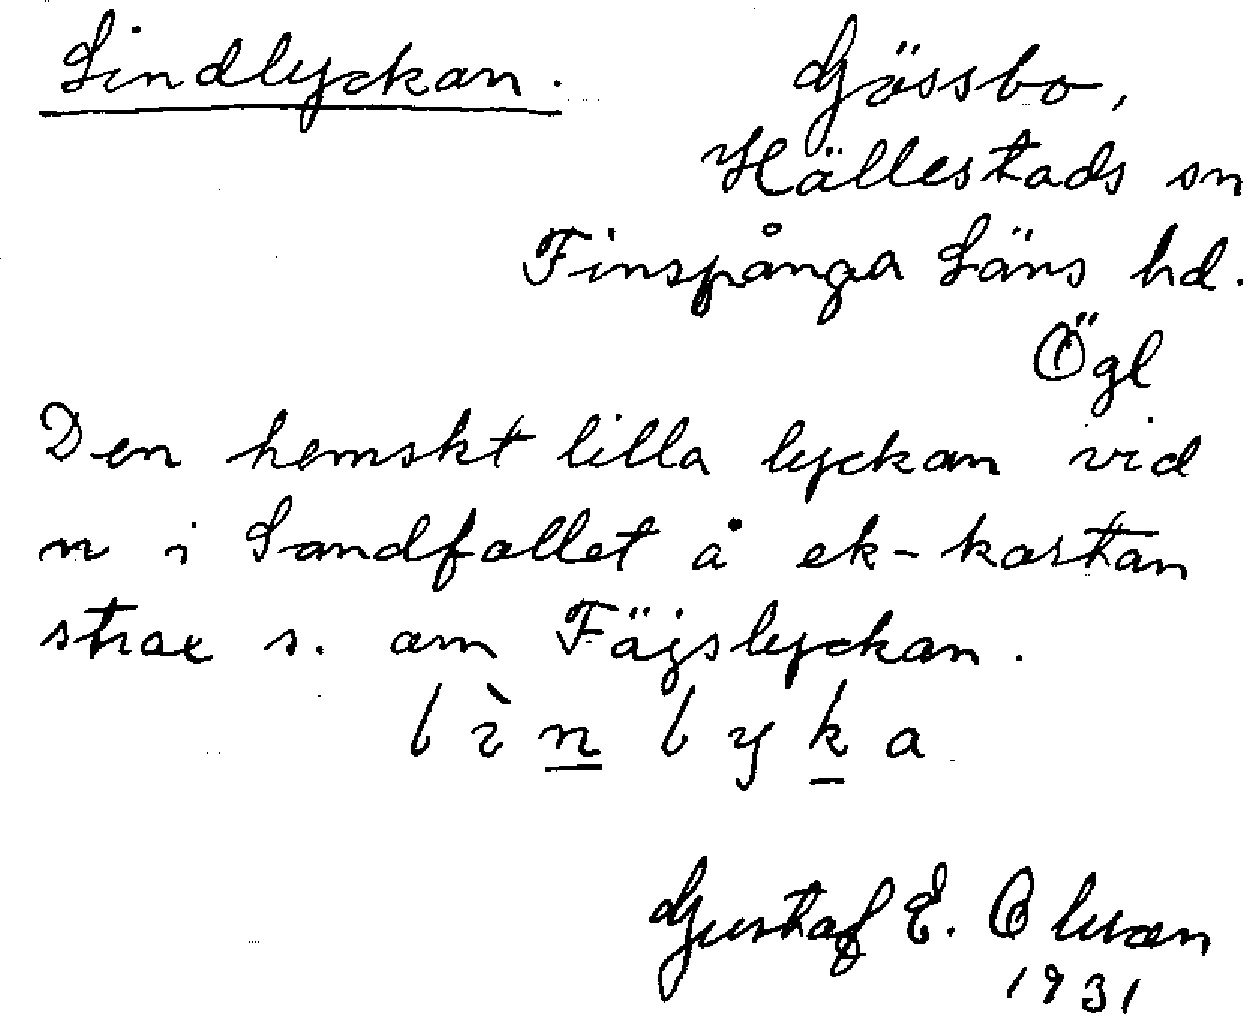 Lindlyckan.
Gössbo,
Hällestads sn
Finspånga Läns hd.
Ögl
Den hemskt lilla lyckan vid
n i Sandfallet å ek-kartan
strax s. om Fäjslyckan.
lìnlyka
Gustaf E. Olsson
1931